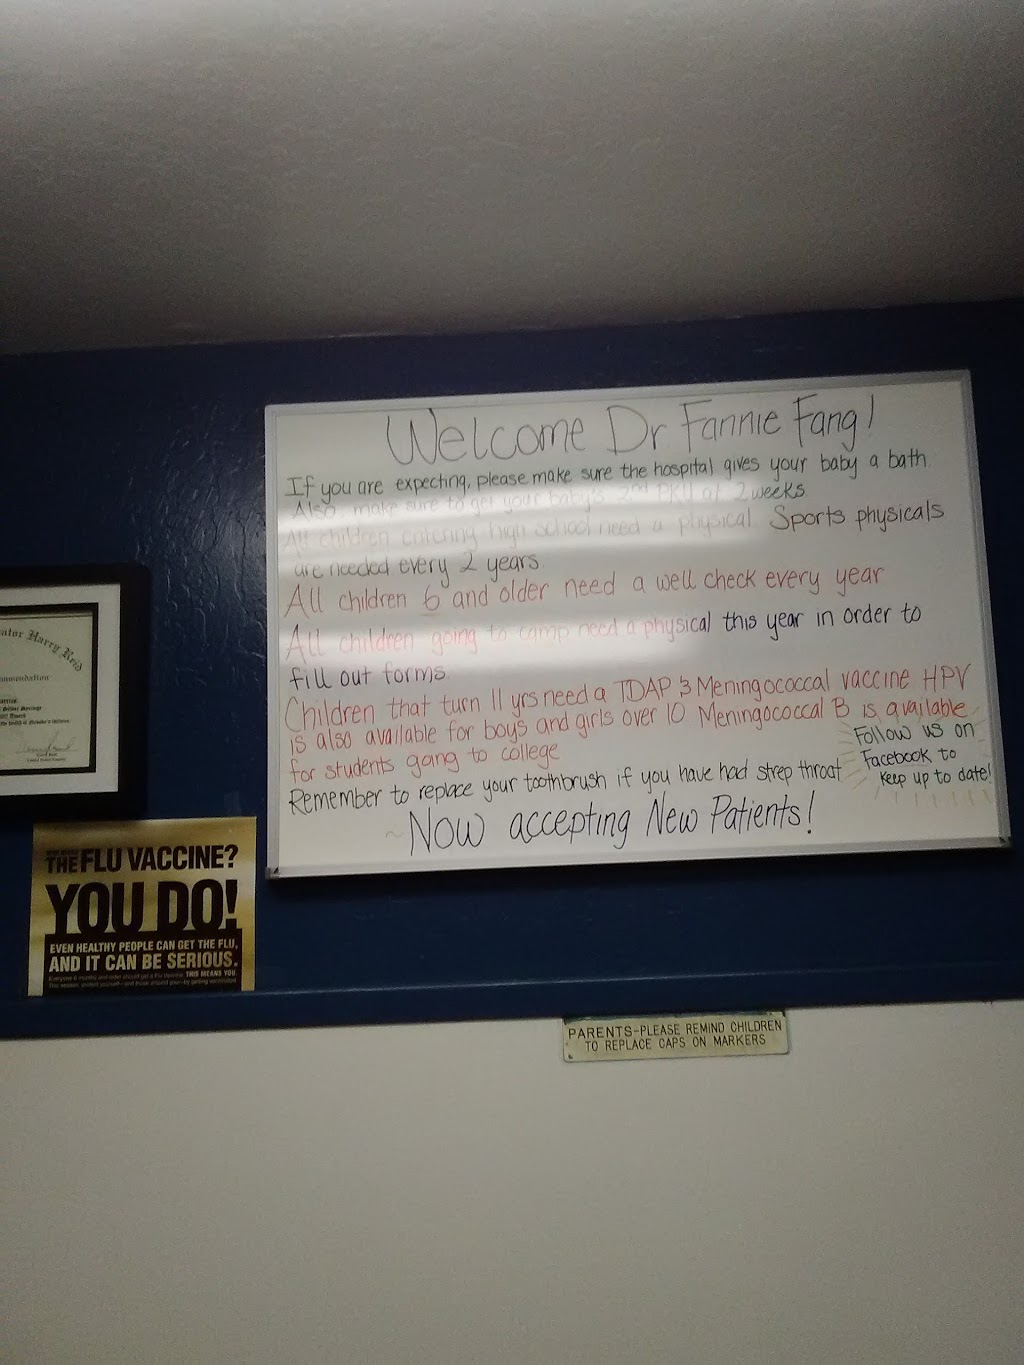 Welcome Dr. Fannie Fang!
If you are expecting, please make sure the hospital gives your baby a bath.
Also, make sure to get your baby's 2nd PKU at 2 weeks.
All children entering high school need a physical. Sports physicals
are needed every 2 years.
All children 6 and older need a well check every year
All children going to camp need a physical this year in order to
fill out forms.
Children that turn 11 yrs need a TDAP & Meningococcal vaccine HPV
is also available for boys and girls over 10 Meningococcal B is available
for students going to college
Follow us on
Facebook to
keep up to date!
Remember to replace your toothbrush if you have had strep throat
~Now accepting New Patients!
ator Harry Reid
mmendation
THE FLU VACCINE?
YOU DO!
EVEN HEALTHY PEOPLE CAN GET THE FLU,
AND IT CAN BE SERIOUS.
Everyone 6 months and older should get a flu vaccine. THIS MEANS YOU.
This season, protect yourself—and those around you—by getting vaccinated.
PARENTS-PLEASE REMIND CHILDREN
TO REPLACE CAPS ON MARKERS